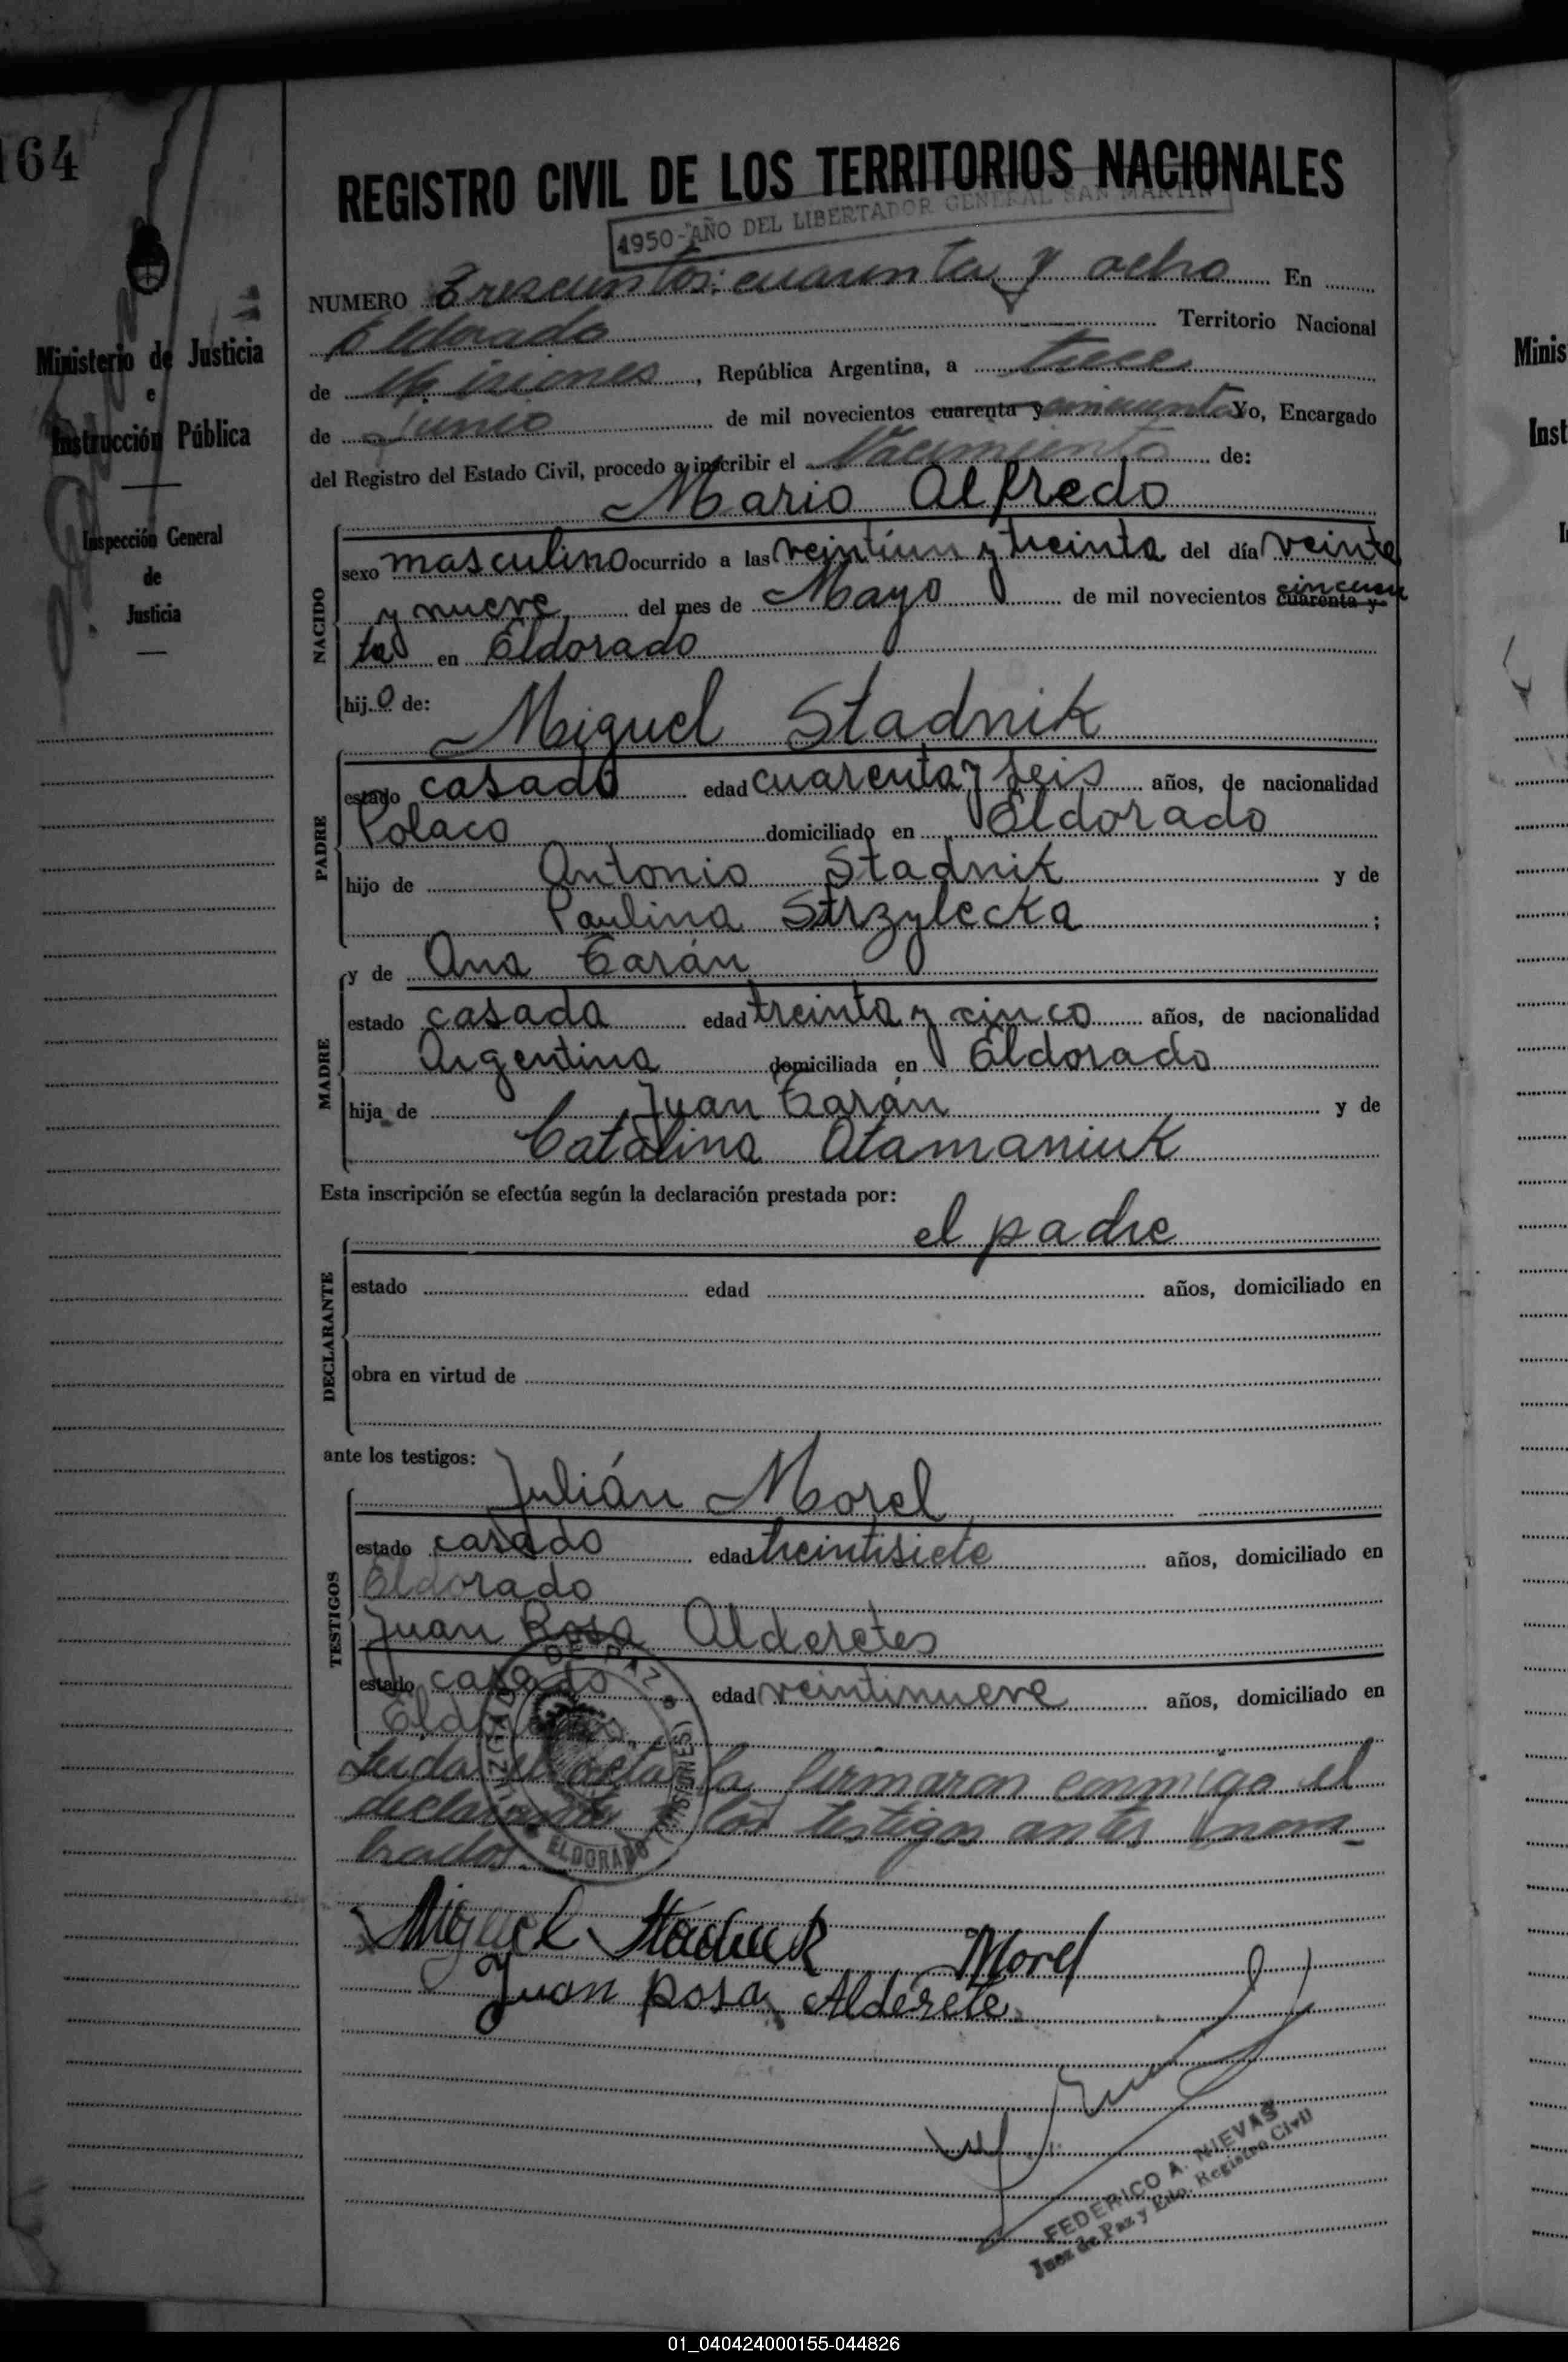 164
Ministerio de Justicia
e
Instrucción Pública
Inspección General
de
Justicia
REGISTRO CIVIL DE LOS TERRITORIOS NACIONALES
1950-AÑO DEL LIBERTADOR GENERAL SAN MARTIN
NUMERO Trescientos cuarenta y ocho En
Eldorado Territorio Nacional
de Misiones, República Argentina, a trece
de Junio de mil novecientos cuarenta y cincuenta Yo, Encargado
del Registro del Estado Civil, procedo a inscribir el Nacimiento de:
Mario Alfredo
NACIDO
sexo masculino ocurrido a las veintiun y treinta del día veinte
y nueve del mes de Mayo de mil novecientos cuarenta y cincuen
ta en Eldorado
hijo de:
Miguel Stadnik
PADRE
estado casado edad cuarenta y seis años, de nacionalidad
Polaco domiciliado en Eldorado
hijo de Antonio Stadnik y de
Paulina Strzylecka ;
y de Ana Tarán
MADRE
estado casada edad treinta y cinco años, de nacionalidad
Argentina domiciliada en Eldorado
hija de Juan Tarán y de
Catalina Atamaniuk
Esta inscripción se efectúa según la declaración prestada por:
el padre
DECLARANTE
estado edad años, domiciliado en
obra en virtud de
ante los testigos:
Julián Morel
TESTIGOS
estado casado edad treintisiete años, domiciliado en
Eldorado
Juan Rosa Alderetes
estado casado edad veintinueve años, domiciliado en
Eldorado
Leida el acta la firmaron conmigo el
declarante y los testigos antes nom-
brados.
ELDORADO (MISIONES)
Miguel Stadnik Morel
Juan Rosa Alderete
FEDERICO A. NIEVAS
Juez de Paz y Edo. Registro Civil
Minis
Inst
01_040424000155-044826